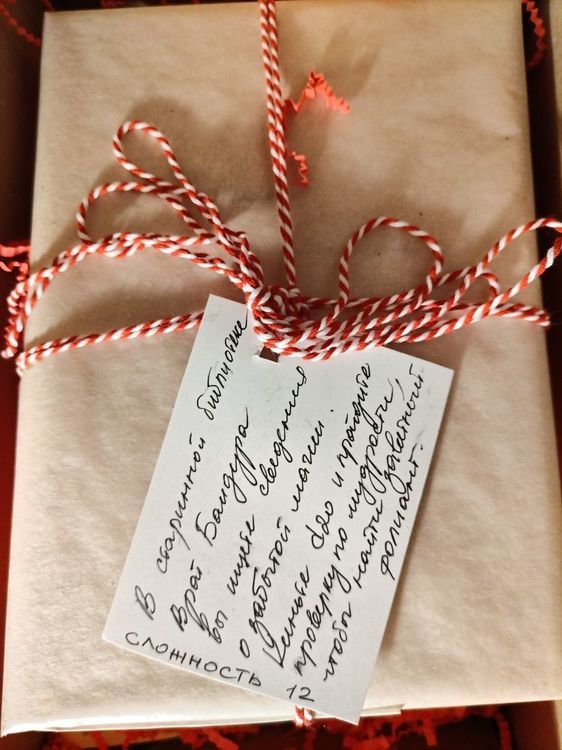 В старинной библиотеке
Врай Бандура
вы ищете сведения
о забытой магии.
Киньте d20 и пройдите
проверку по мудрости,
чтобы найти заветный
фолиант.
СЛОЖНОСТЬ 12